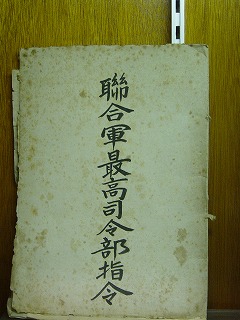 聯合軍最高司令部指令